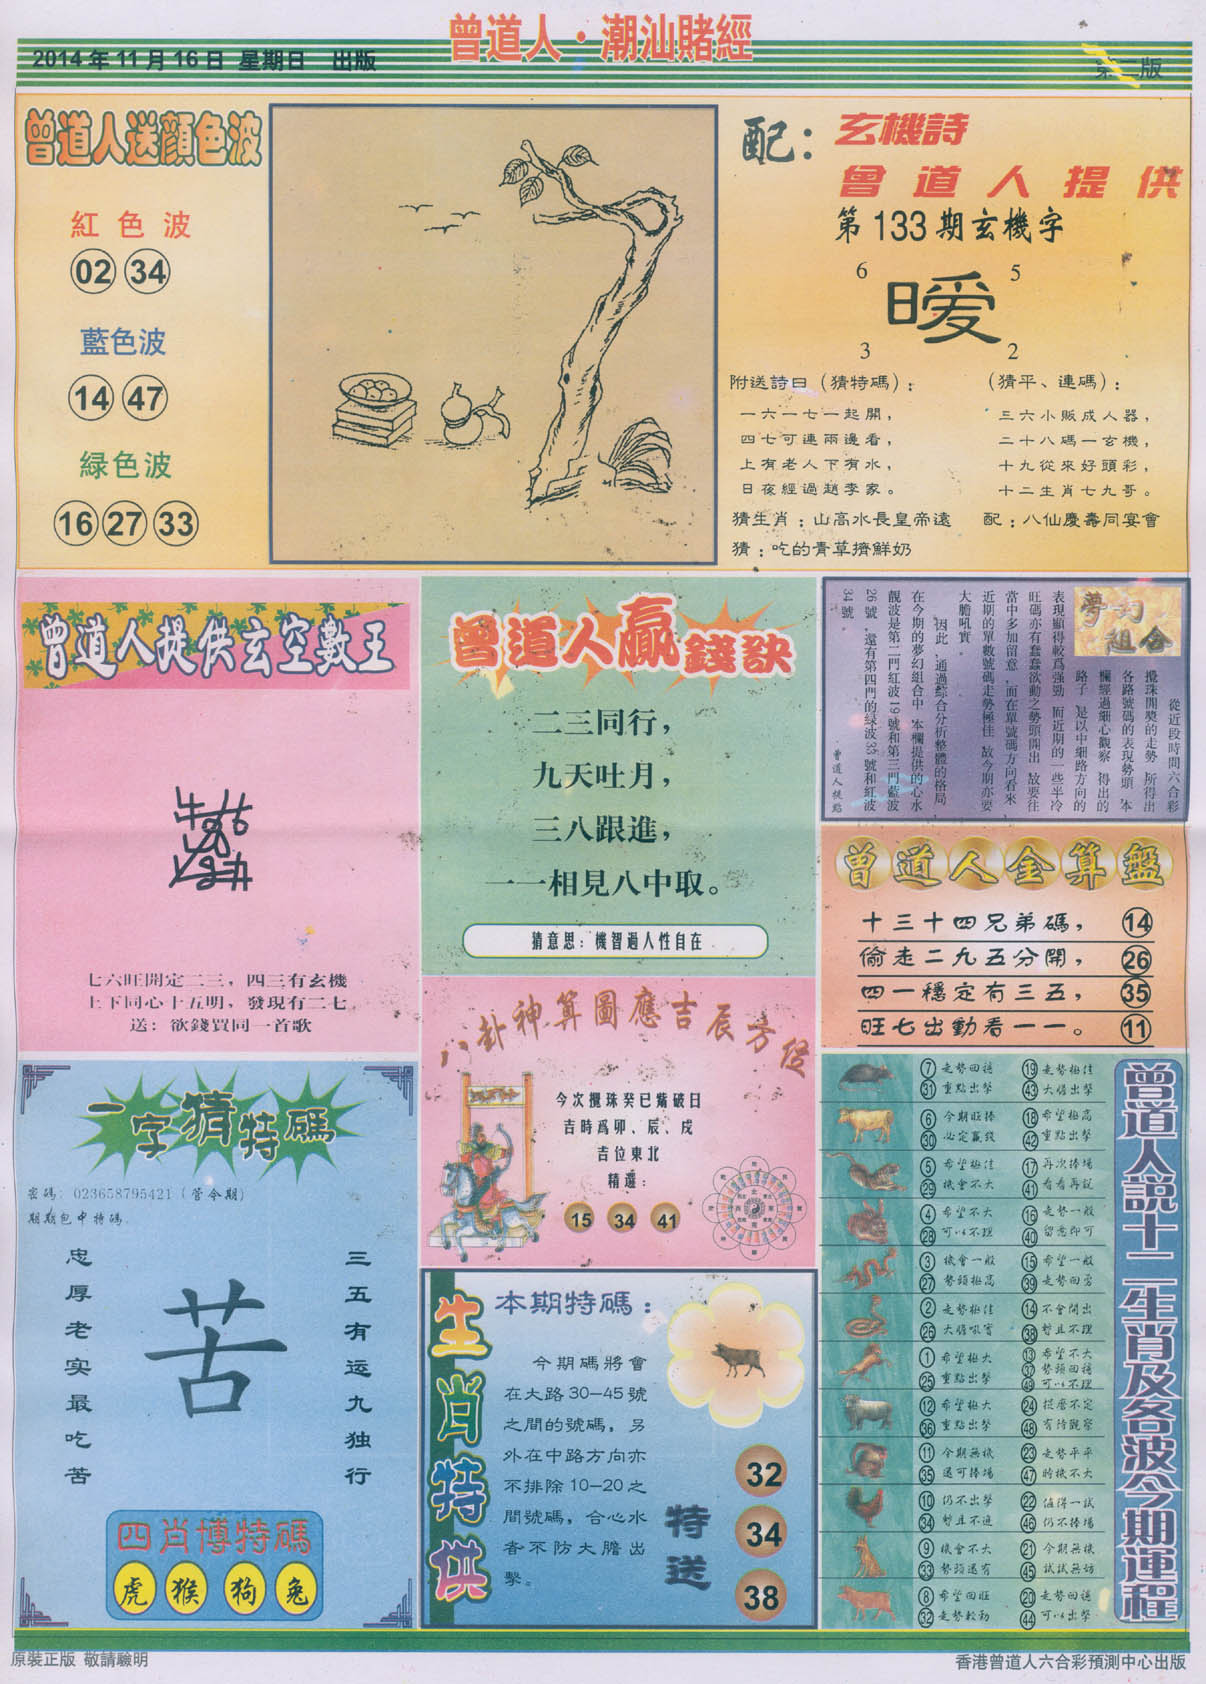 2014年11月16日 星期日 出版
曾道人·潮汕賭經
第二版
曾道人送顔色波
紅色波
02 34
藍色波
14 47
緑色波
16 27 33
配：玄機詩
曾道人提供
第133期玄機字
6 5
曖
3 2
附送詩曰（猜特碼）：
一六一七一起開，
四七可連兩邊看，
上有老人下有水，
日夜經過趙李家。
（猜平、連碼）：
三六小販成人器，
二十八碼一玄機，
十九從來好頭彩，
十二生肖七九哥。
猜生肖：山高水長皇帝遠
配：八仙慶壽同宴會
猜：吃的青草擠鮮奶
曾道人提供玄空數王
七六旺開定二三，四三有玄機
上下同心十五明，發現有二七。
送：欲錢買同一首歌
曾道人贏錢訣
二三同行，
九天吐月，
三八跟進，
一一相見八中取。
猜意思：機智過人性自在
夢幻組合
從近段時間六合彩
攪珠開獎的走勢 所得出
各路號碼的表現勢頭 本
欄經過細心觀察 得出的
路子 是以中細路方向的
表現顯得較爲强勁 而近期的一些半冷
旺碼亦有蠢蠢欲動之勢頭開出 故要往
當中多加留意，而在單號碼方向看來
近期的單數號碼走勢極佳 故今期亦要
大膽吼實。
因此，通過綜合分析整體的格局
在今期的夢幻組合中 本欄提供的心水
靚波是第二門紅波19號和第三門藍波
26號，還有第四門的绿波33號和紅波
34號。
曾道人提點
曾道人金算盤
十三十四兄弟碼， 14
偷走二九五分開， 26
四一穩定有三五， 35
旺七出動看一一。 11
八卦神算圖應吉辰方位
今次攪珠癸已觜破日
吉時爲卯、辰、戌
吉位東北
精選：
15 34 41
一字猜特碼
密碼：023658795421（管令期）
期期包中特碼.
忠厚老实最吃苦
苦
三五有运九独行
四肖博特碼
虎 猴 狗 兔
生肖特供
本期特碼：
今期碼將會
在大路30—45號
之間的號碼，另
外在中路方向亦
不排除10—20之
間號碼，合心水
者不防大膽出
擊。
特送
32
34
38
曾道人說十二生肖及各波今期運程
7 走勢回穩 19 走勢極佳
31 重點出擊 43 大膽出擊
6 今期旺捧 18 希望極高
30 必定贏錢 42 重點出擊
5 希望極佳 17 再次捧場
29 機會不大 41 看看再說
4 希望不大 16 走勢一般
28 可以不理 40 留意即可
3 機會一般 15 希望一般
27 勢頭極高 39 走勢回勇
2 走勢極佳 14 不會開出
26 大膽吼實 38 暫且不理
1 希望極大 13 希望不大
37 勢頭回穩
25 重點出擊 49 可以不理
12 希望極大 24 捉磨不定
36 重點出擊 48 有待觀察
11 今期無機 23 走勢平平
35 還可捧場 47 時機不大
10 仍不出擊 22 值得一試
34 暫且不通 46 仍不捧場
9 機會不大 21 今期無機
33 勢頭還有 45 試試無妨
8 希望回旺 20 走勢回穩
32 走勢較勁 44 可以出擊
原裝正版 敬請驗明
香港曾道人六合彩預測中心出版